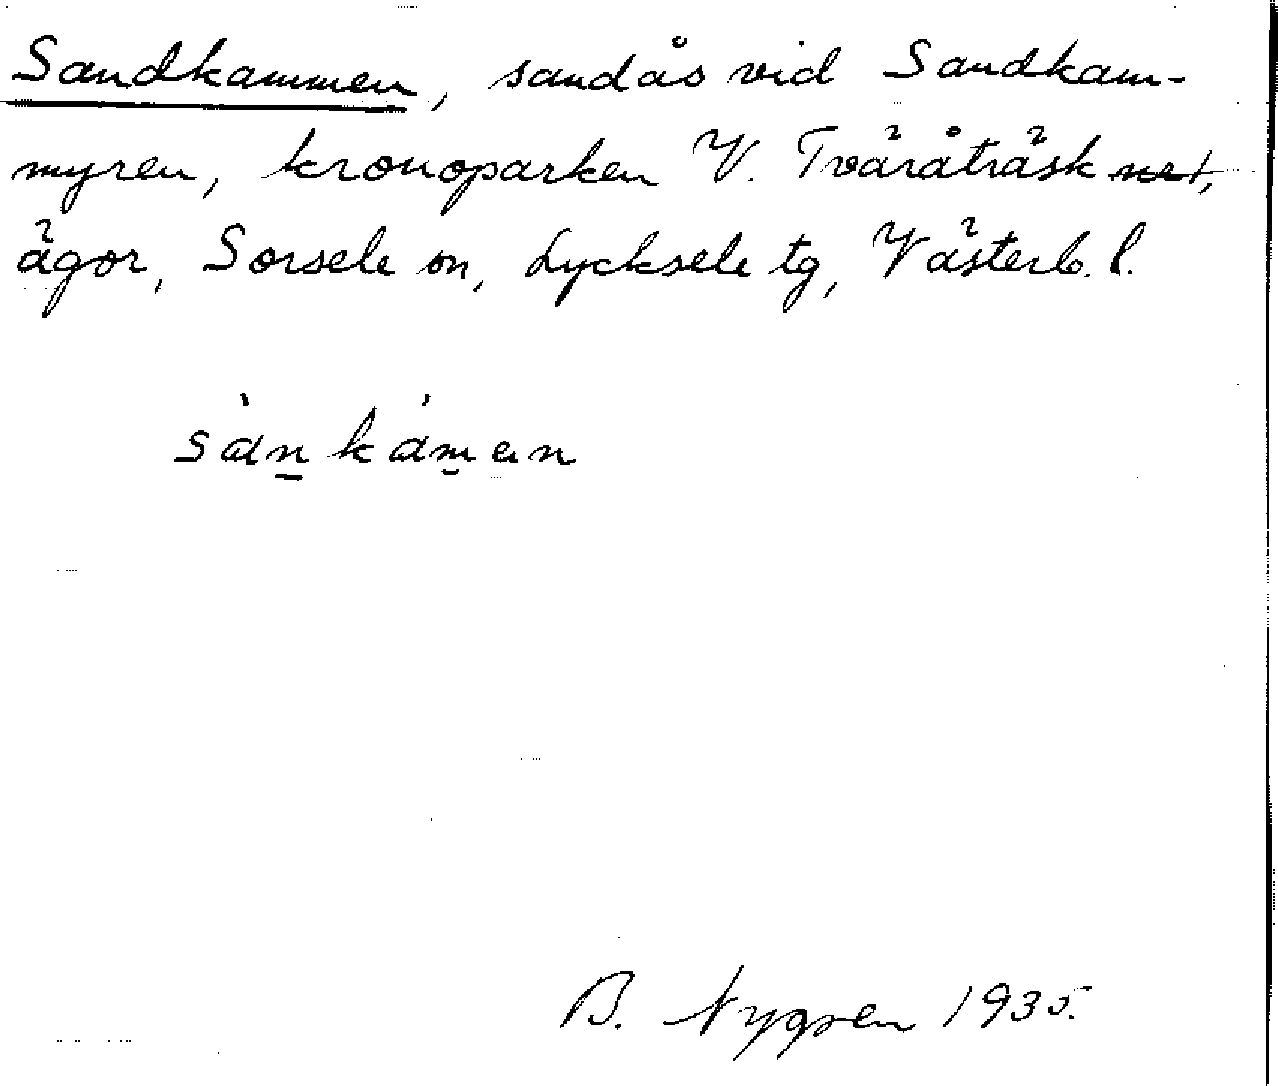 Sandkammen, sandås vid Sandkam-
myren, kronoparken V. Tväråträsk net,
ägor, Sorsele sn, Lycksele tg, Västerb. l.
sànkámen
B. Nygren 1935.